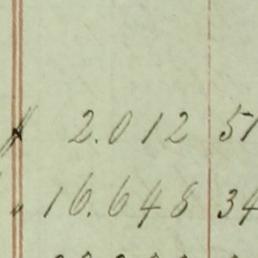 2.012 51
16.648 34